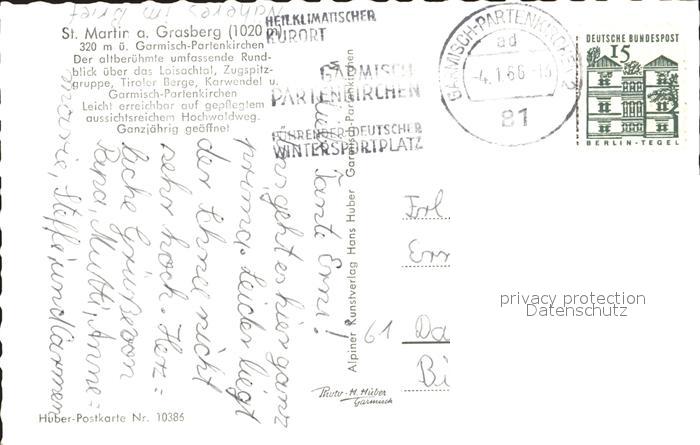 Näheres im Brief
St. Martin a. Grasberg (1020
320 m ü. Garmisch-Partenkirchen
Der altberühmte umfassende Rund-
blick über das Loisachtal, Zugspitz-
gruppe, Tiroler Berge, Karwendel u.
Garmisch-Partenkirchen
Leicht erreichbar auf gepflegtem
aussichtsreichem Hochwaldweg.
Ganzjährig geöffnet
HEILKLIMATISCHER
KURORT
GARMISCH
PARTENKIRCHEN
FÜHRENDER DEUTSCHER
WINTERSPORTPLATZ
GARMISCH-PARTENKIRCHEN 2
ad
-4.1.66-
81
DEUTSCHE BUNDESPOST
15
BERLIN-TEGEL
Tante Erni!
geht es hier ganz
prima. Leider liegt
der Schnee nicht
sehr hoch. Herz=
liche Grüße von
Papa, Mutti, Anne=
marie, Steffi und Carmen
Alpiner Kunstverlag Hans Huber Garmisch-Partenkirchen
Frl.
61 Da
Bi
privacy protection
Datenschutz
Photo-H. Huber
Garmisch
Huber-Postkarte Nr. 10386